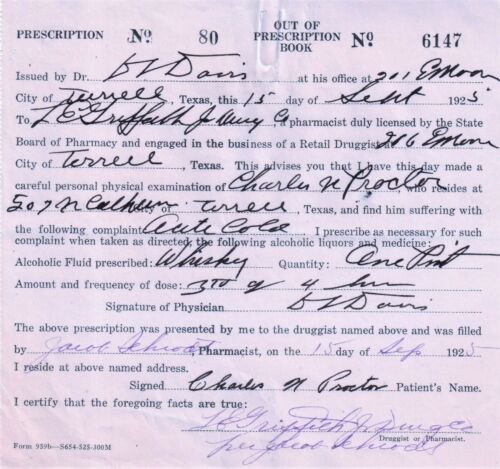 PRESCRIPTION No. 80 OUT OF PRESCRIPTION BOOK No. 6147
Issued by Dr. D L Davis at his office at 211 E Moore
City of Terrell, Texas, this 15 day of Sept 1925
To L E Griffith Jr Drug Co, a pharmacist duly licensed by the State
Board of Pharmacy and engaged in the business of a Retail Druggist 206 E Moore
City of Terrell, Texas. This advises you that I have this day made a
careful personal physical examination of Charles N Proctor, who resides at
507 N Calhoun City of Terrell, Texas, and find him suffering with
the following complaint Acute Cold I prescribe as necessary for such
complaint when taken as directed, the following alcoholic liquors and medicine:
Alcoholic Fluid prescribed: Whiskey Quantity: One Pint
Amount and frequency of dose: 4 hrs
Signature of Physician D L Davis
The above prescription was presented by me to the druggist named above and was filled
by Jacob Schrodt, Pharmacist, on the 15 day of Sep 1925
I reside at above named address.
Signed Charles N Proctor Patient's Name.
I certify that the foregoing facts are true:
L E Griffith Jr Drug Co
Druggist or Pharmacist.
per Jacob Schrodt
Form 959b—S654-525-300M